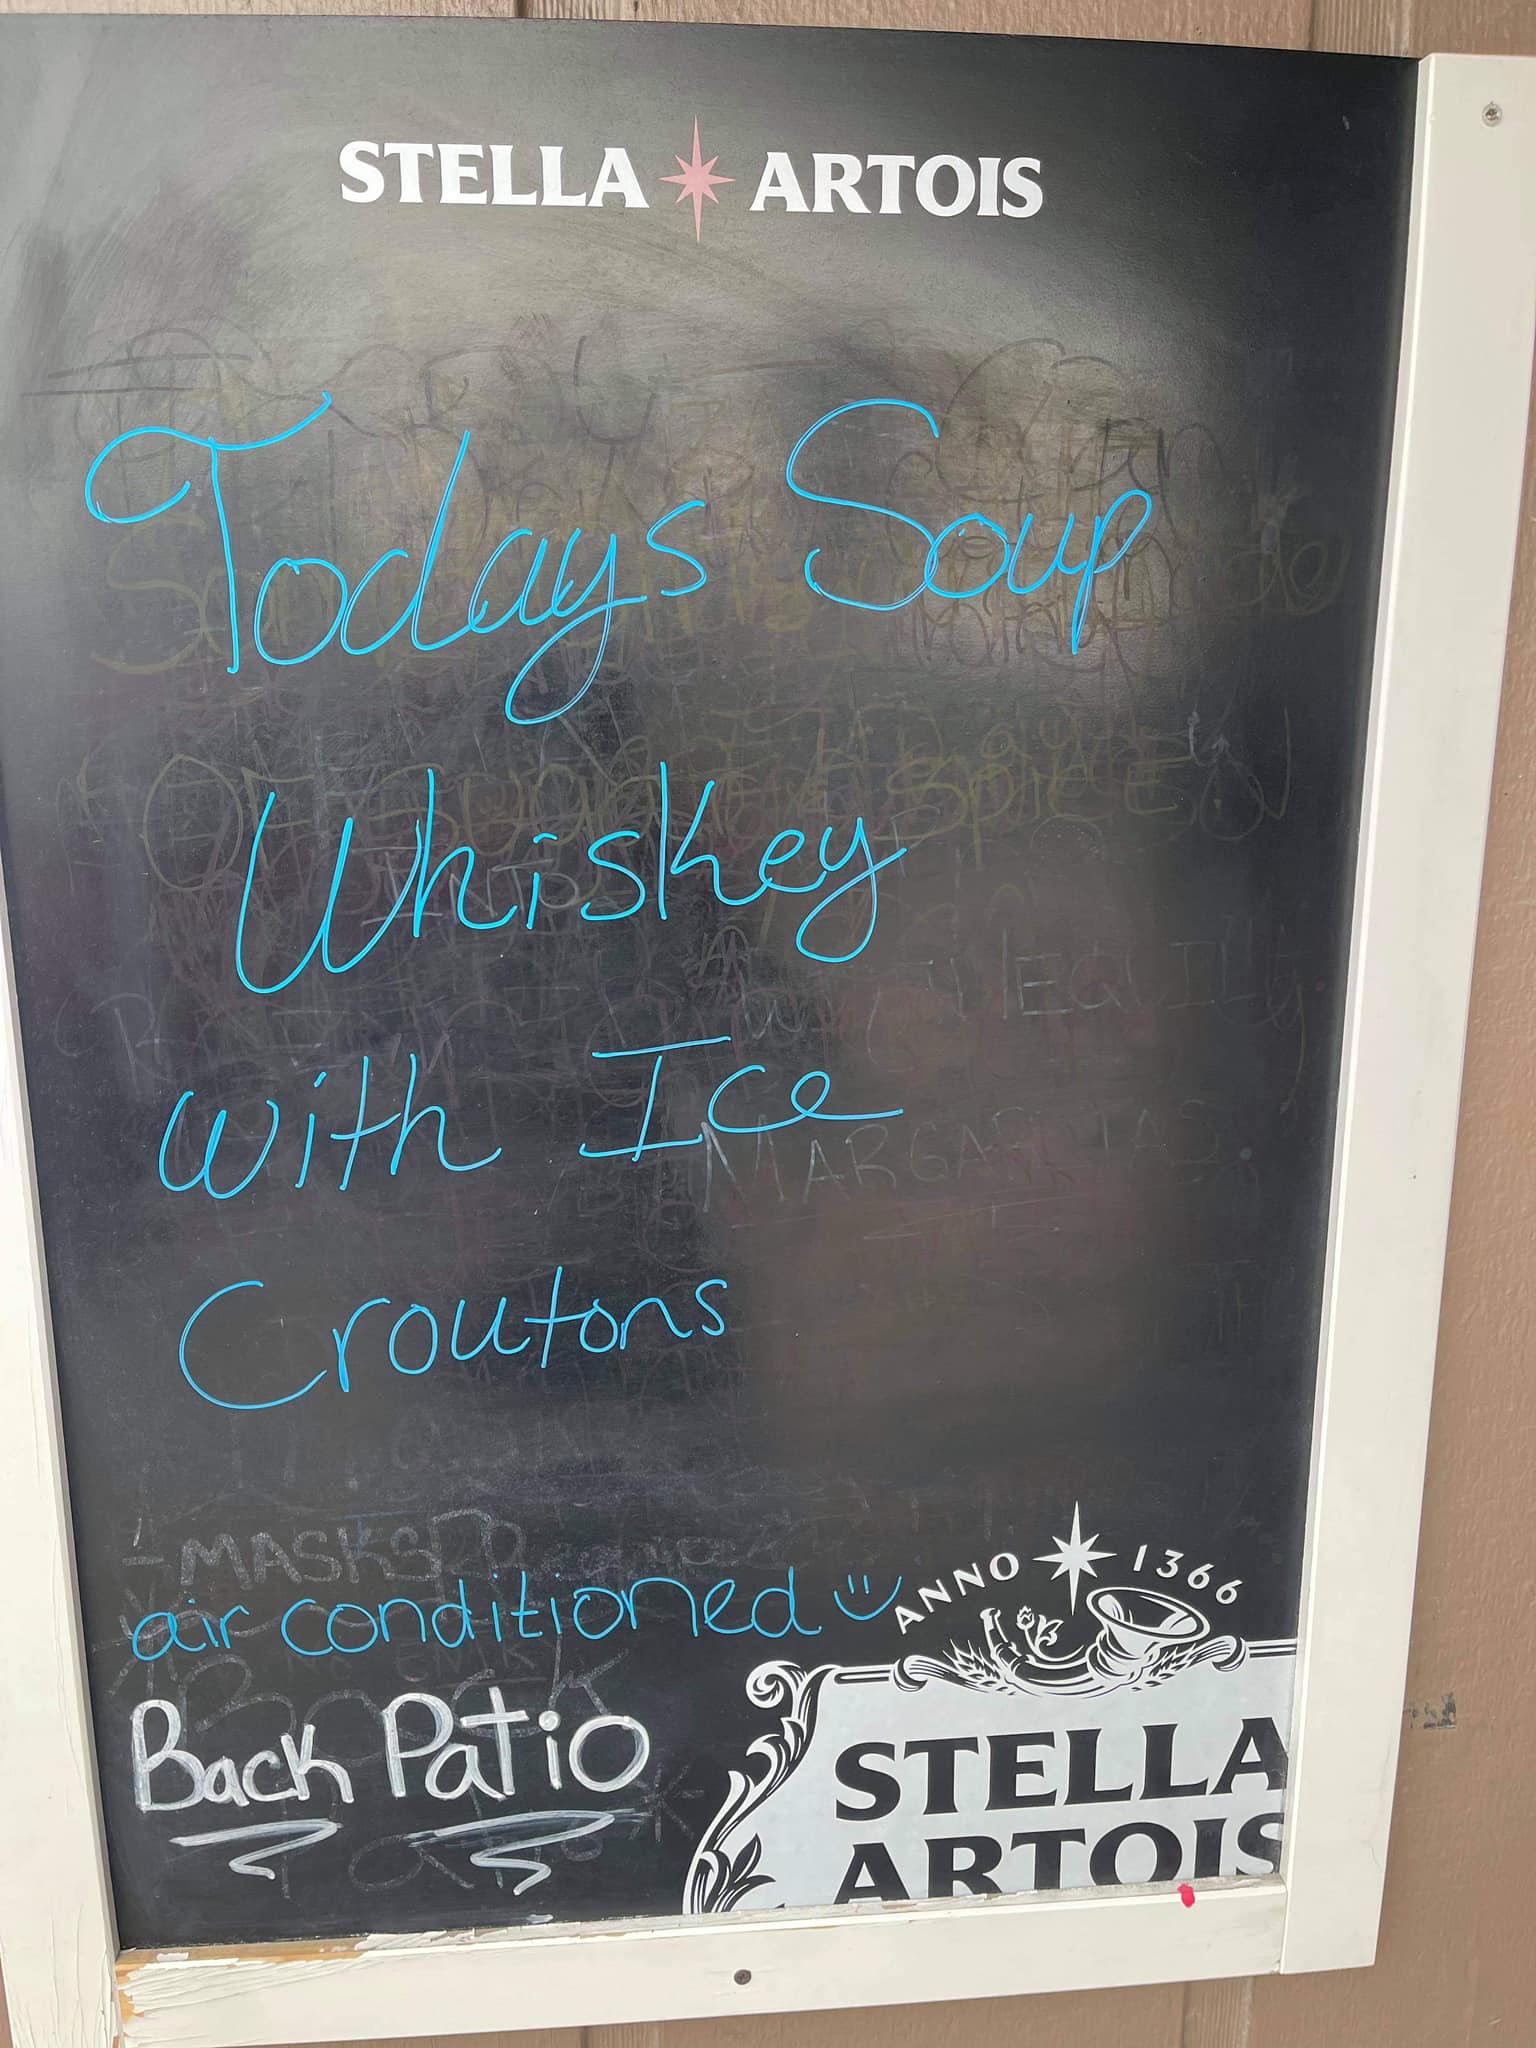 STELLA ARTOIS
Todays Soup
Whiskey
with Ice
Croutons
MARGARITAS
MASKS
air conditioned
Back Patio
ANNO 1366
STELLA
ARTOIS